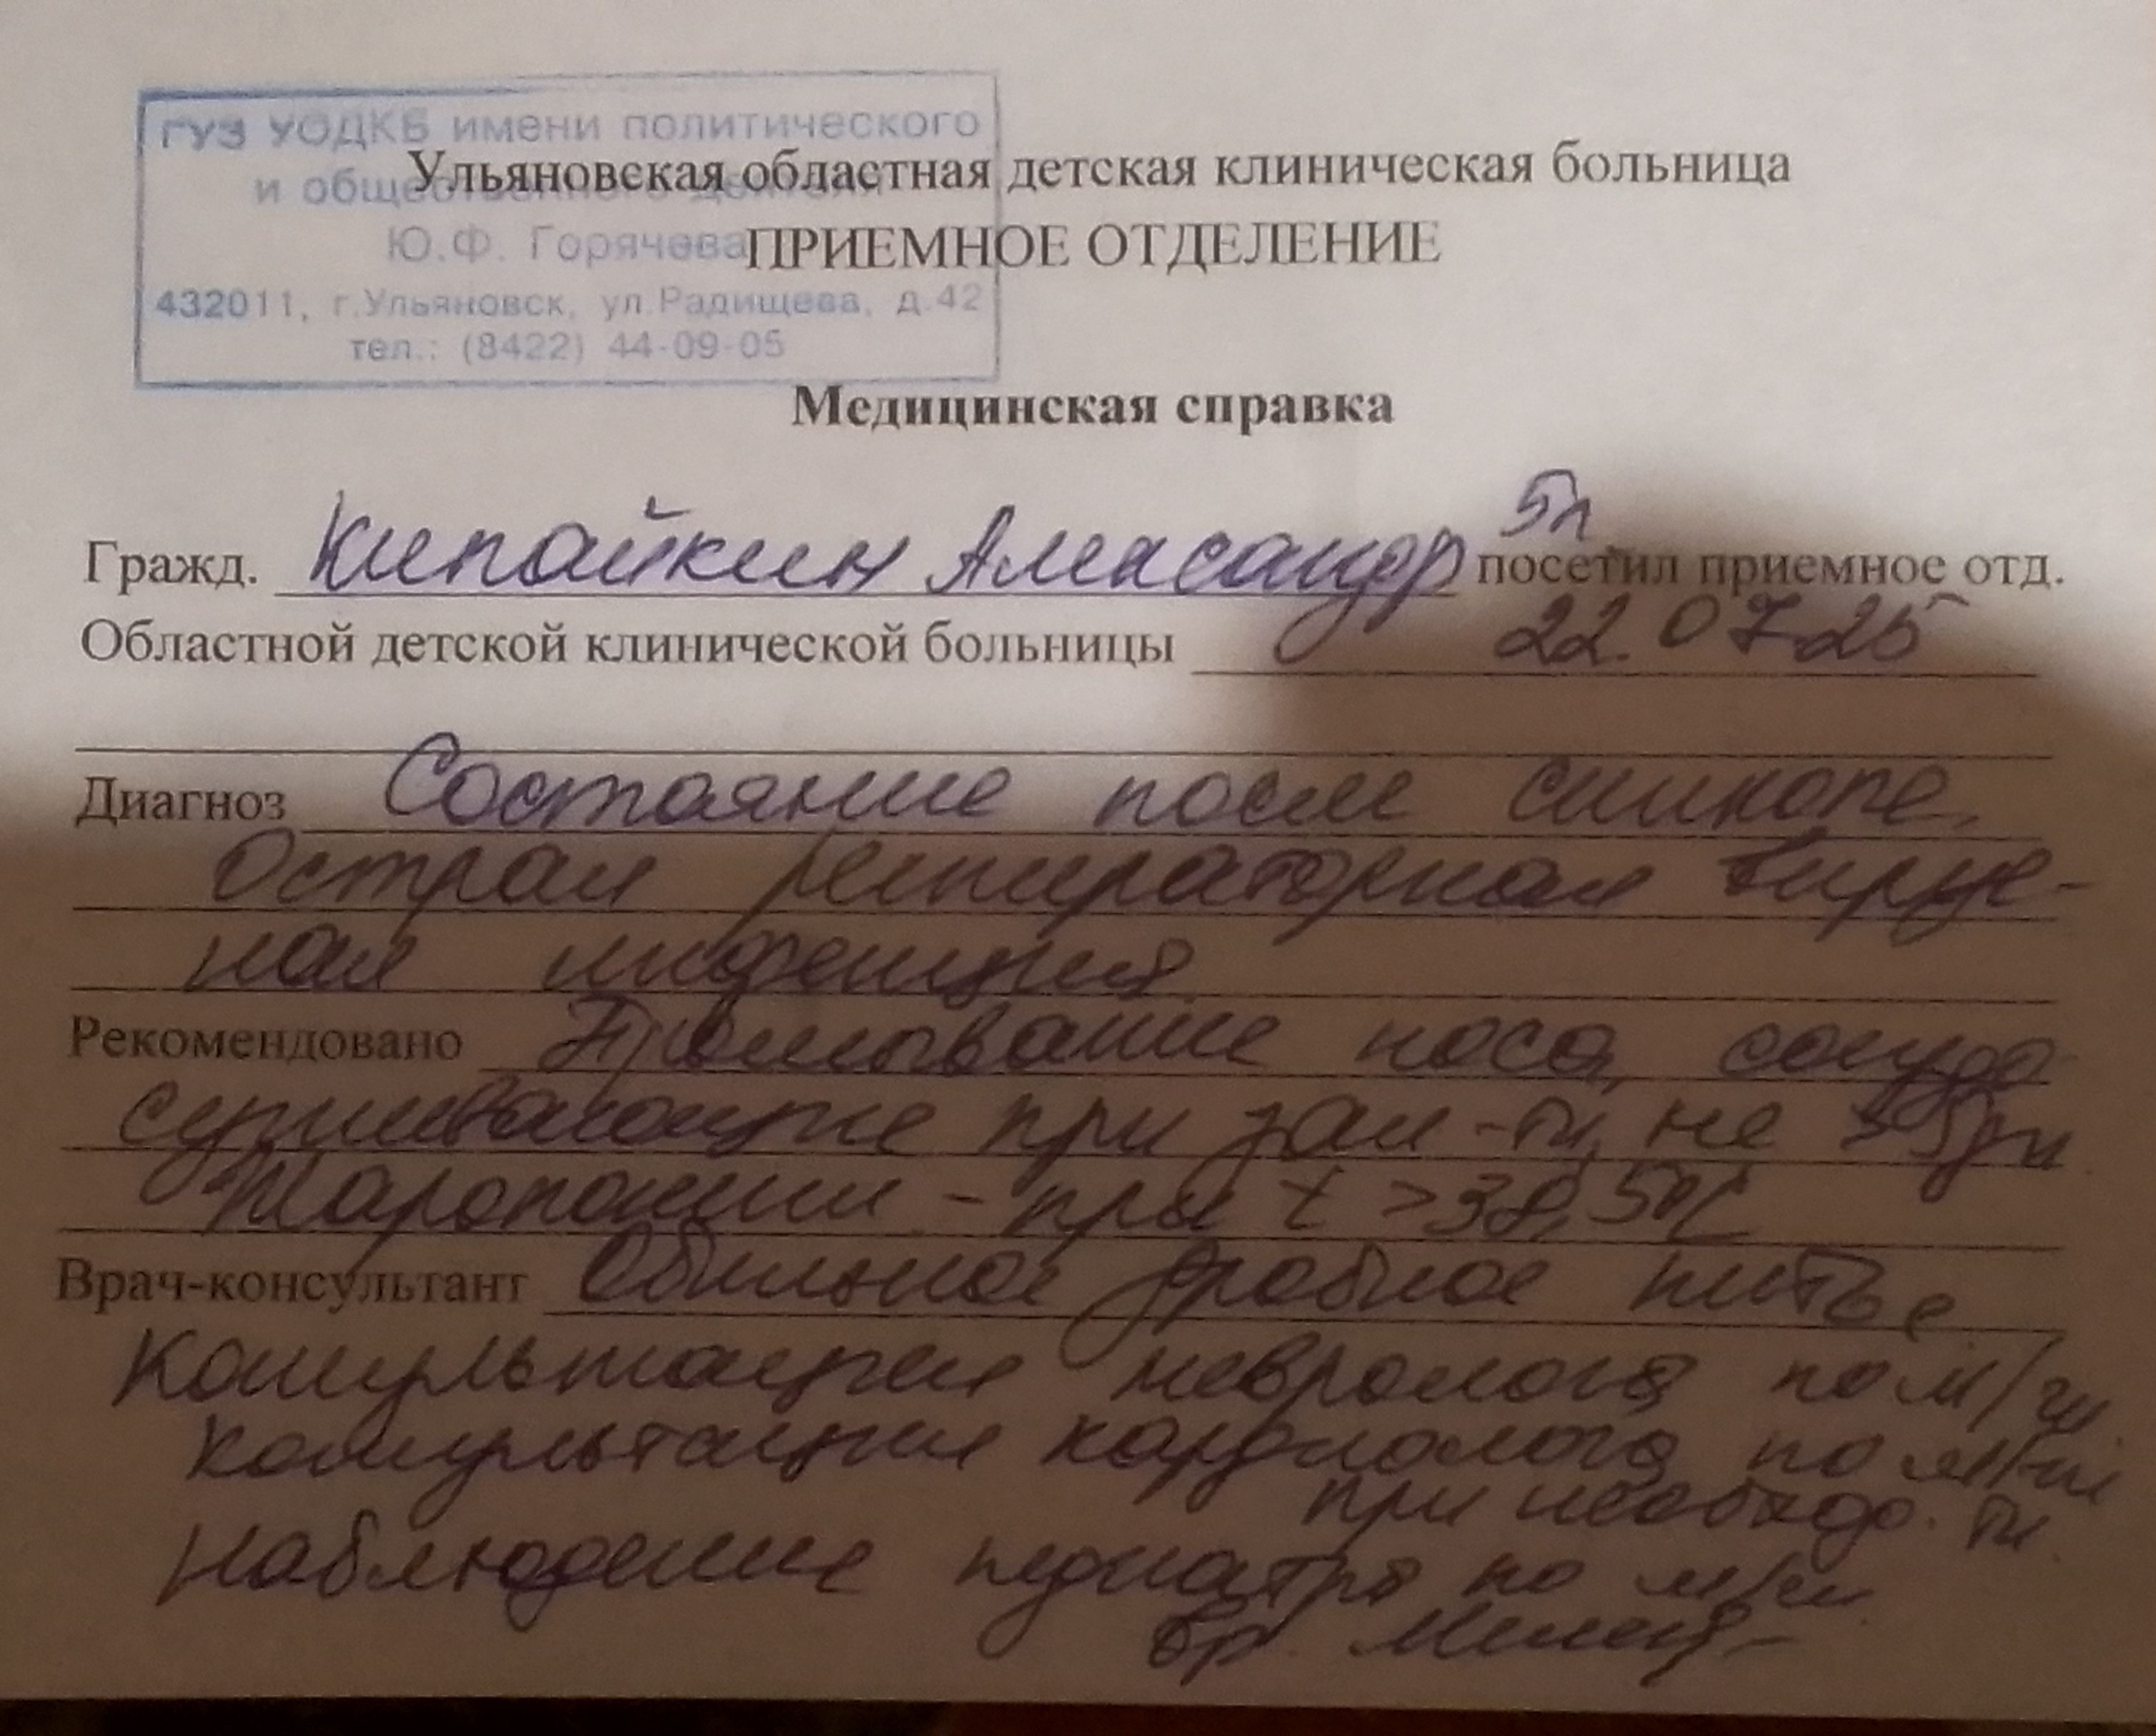 ГУЗ УОДКБ имени политического
и общественного деятеля
Ю.Ф. Горячева
432011, г.Ульяновск, ул.Радищева, д.42
тел.: (8422) 44-09-05
Ульяновская областная детская клиническая больница
ПРИЕМНОЕ ОТДЕЛЕНИЕ
Медицинская справка
5л
Гражд. Кипайкин Александр посетил приемное отд.
Областной детской клинической больницы 22.07.25
Диагноз Состояние после синкопе.
Острая респираторная вирус-
ная инфекция.
Рекомендовано Промывание носа, сосудо
суживающие при зал-ти, не >5дн
Жаропониж - при t >38,5°C
Врач-консультант Обильное дробное питье
Консультация невролога по м/ж
Консультация кардиолога по м/ж
при необходо-ти
Наблюдение педиатра по м/ж
Вр.